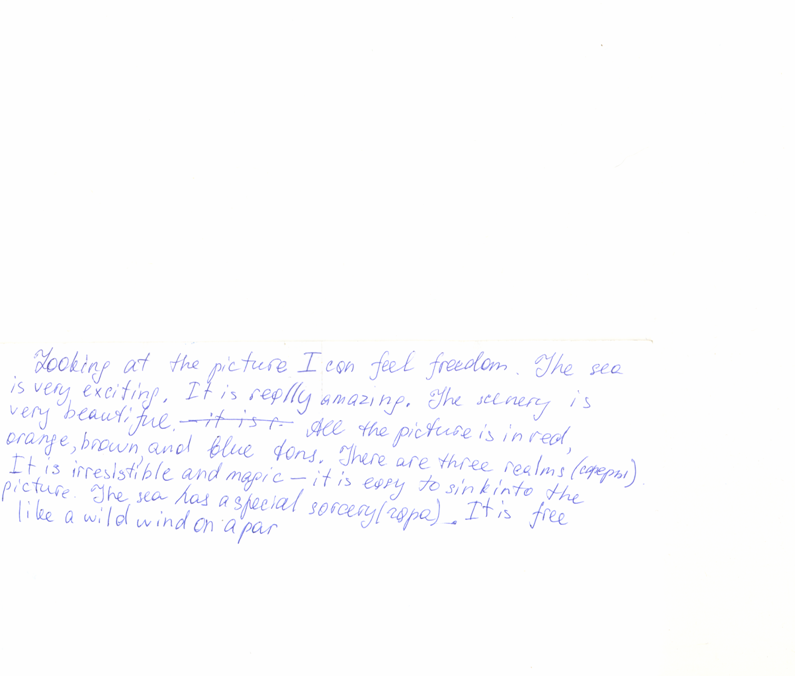 Looking at the picture I can feel freedom. The sea
is very exciting. It is really amazing. The scenery is
very beautiful. All the picture is in red,
orange, brown, and blue tons. There are three realms (сферы).
It is irresistible and magic – it is easy to sink into the
picture. The sea has a special sorcery (чара). It is free
like a wild wind on a par